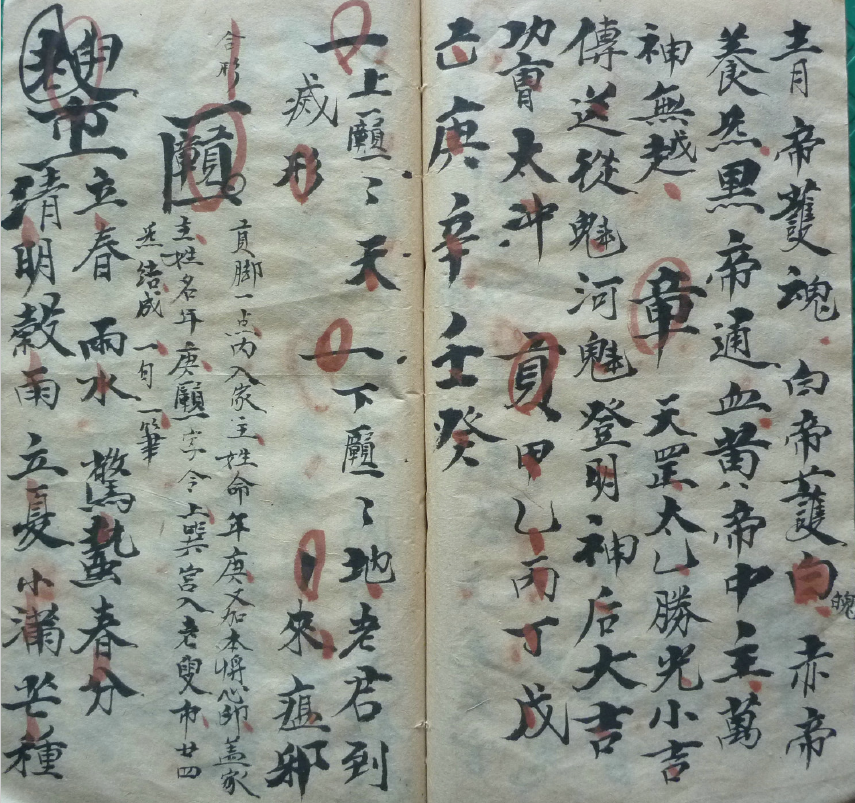 青帝護魂白帝護白魄赤帝
養炁黒帝通血黄帝中主萬
神無越 章 天罡太乙勝光小吉
傳送從魁河魁登明神后大吉
功曹太冲 貢 甲乙丙丁戊
己庚辛壬癸
一上願〻天 一下願〻地老君到
滅形 來瘟邪
合形
貢脚一点内入家主姓命年庚又加本將心卯盖家
主姓名年庚願字令上巽宮入老叟市廿四
炁結成一句一筆
立春雨水驚蟄春分
清明穀雨立夏小滿芒種